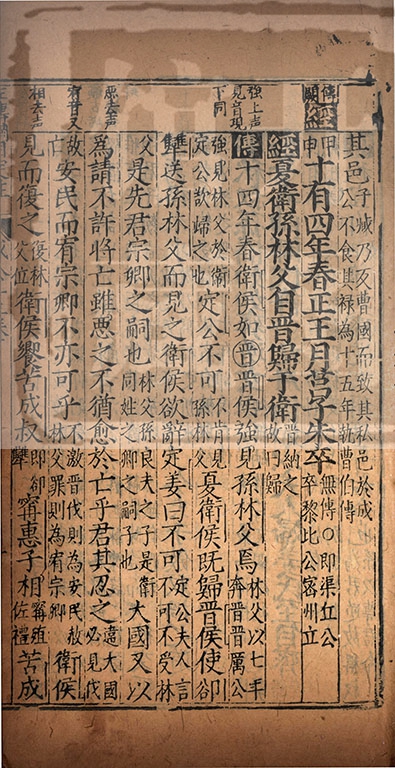 其邑子臧乃反曹國而致其私邑於成公不食其禄為十五年執曹伯傳
傳闕經
甲申十有四年春正王月莒子朱卒無傳○即渠丘公卒黎比公密州立
經夏衛孫林父自晉歸于衛晉納之故曰歸
強上声見音現下同
傳十四年春衛侯如晉晉侯強見孫林父焉林父以七年奔晉晉厲公
強見林父於衛定公欲歸之也定公不可不肯見孫林父夏衛侯既歸晉侯使郤
犨送孫林父而見之衛侯欲辭定姜曰不可定公夫人言不可不受林
父是先君宗卿之嗣也林父孫良夫之子是衛同姓之卿之嗣子也大國又以
惡去声
為請不許將亡雖惡之不猶愈於亡乎君其忍之違大國必見伐
宥音又
亡安民而宥宗卿不亦可乎不激晉伐則為安民赦林父罪則為宥宗卿衛侯
相去声
見而復之復林父位衛侯饗苦成叔即郤犨甯惠子相甯殖佐禮苦成